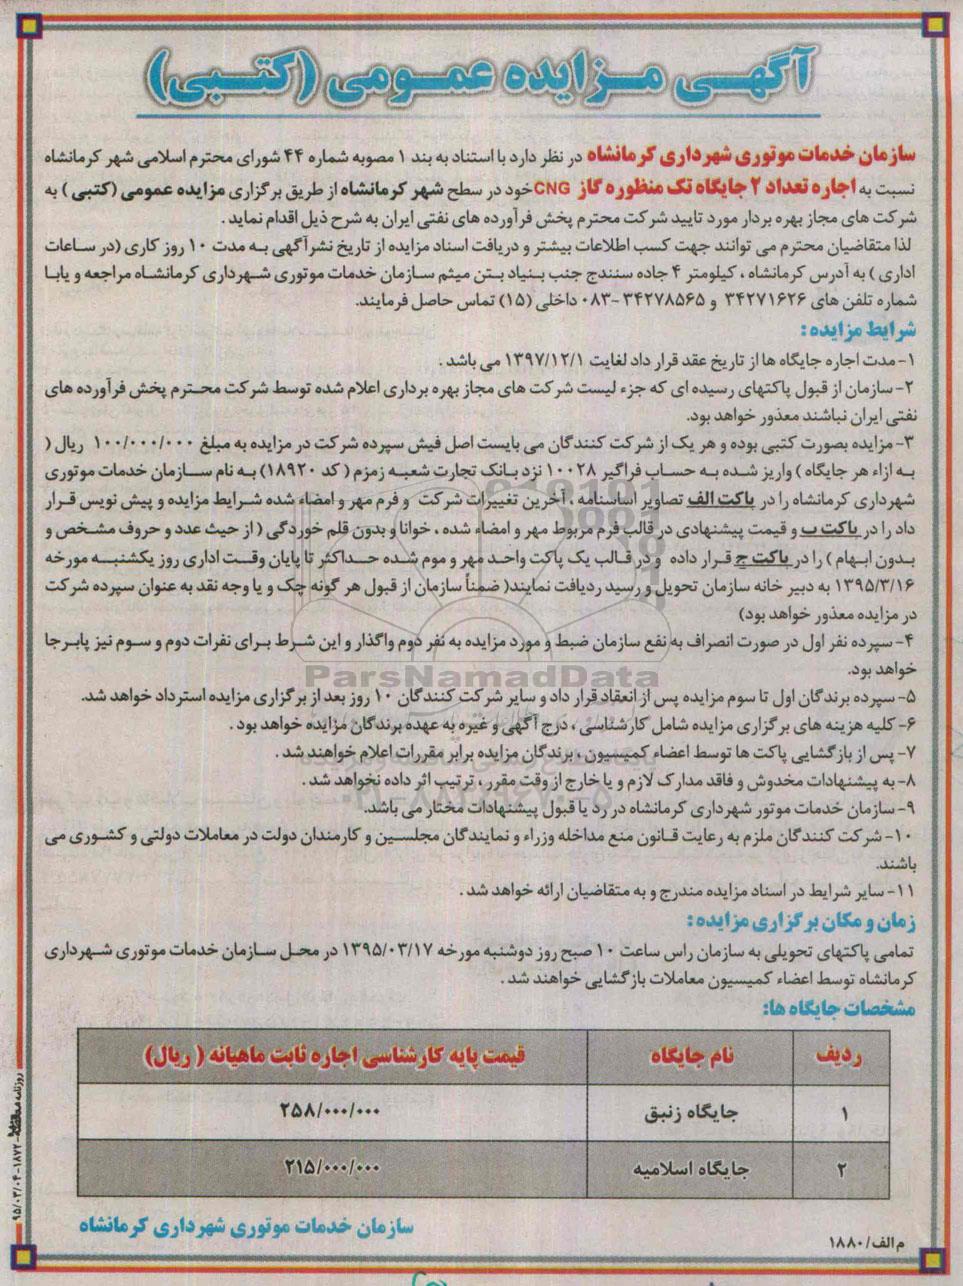 آگهی مزایده عمومی (کتبی)
سازمان خدمات موتوری شهرداری کرمانشاه در نظر دارد با استناد به بند ۱ مصوبه شماره ۴۴ شورای محترم اسلامی شهر کرمانشاه
نسبت به اجاره تعداد ۲ جایگاه تک منظوره گاز CNG خود در سطح شهر کرمانشاه از طریق برگزاری مزایده عمومی (کتبی) به
شرکت های مجاز بهره بردار مورد تایید شرکت محترم پخش فرآورده های نفتی ایران به شرح ذیل اقدام نماید .
لذا متقاضیان محترم می توانند جهت کسب اطلاعات بیشتر و دریافت اسناد مزایده از تاریخ نشرآگهی به مدت ۱۰ روز کاری (در ساعات
اداری ) به آدرس کرمانشاه ، کیلومتر ۴ جاده سنندج جنب بنیاد بتن میثم سازمان خدمات موتوری شهرداری کرمانشاه مراجعه و یابا
شماره تلفن های ۳۴۲۷۱۶۲۶ و ۳۴۲۷۸۵۶۵-۰۸۳ داخلی (۱۵) تماس حاصل فرمایند.
شرایط مزایده :
۱-مدت اجاره جایگاه ها از تاریخ عقد قرار داد لغایت ۱۳۹۷/۱۲/۱ می باشد .
۲-سازمان از قبول پاکتهای رسیده ای که جزء لیست شرکت های مجاز بهره برداری اعلام شده توسط شرکت محترم پخش فرآورده های
نفتی ایران نباشند معذور خواهد بود.
۳-مزایده بصورت کتبی بوده و هر یک از شرکت کنندگان می بایست اصل فیش سپرده شرکت در مزایده به مبلغ ۱۰۰/۰۰۰/۰۰۰ ریال (
به ازاء هر جایگاه ) واریز شده به حساب فراگیر ۱۰۰۲۸ نزد بانک تجارت شعبه زمزم ( کد ۱۸۹۲۰) به نام سازمان خدمات موتوری
شهرداری کرمانشاه را در پاکت الف تصاویر اساسنامه ، آخرین تغییرات شرکت و فرم مهر و امضاء شده شرایط مزایده و پیش نویس قرار
داد را در پاکت ب و قیمت پیشنهادی در قالب فرم مربوط مهر و امضاء شده ، خوانا و بدون قلم خوردگی ( از حیث عدد و حروف مشخص و
بدون ابهام ) را در پاکت ج قرار داده و در قالب یک پاکت واحد مهر و موم شده حداکثر تا پایان وقت اداری روز یکشنبه مورخه
۱۳۹۵/۳/۱۶ به دبیر خانه سازمان تحویل و رسید دریافت نمایند( ضمناً سازمان از قبول هر گونه چک و یا وجه نقد به عنوان سپرده شرکت
در مزایده معذور خواهد بود)
۴- سپرده نفر اول در صورت انصراف به نفع سازمان ضبط و مورد مزایده به نفر دوم واگذار و این شرط برای نفرات دوم و سوم نیز پابرجا
خواهد بود.
ParsNamadData
۵- سپرده برندگان اول تا سوم مزایده پس از انعقاد قرار داد و سایر شرکت کنندگان ۱۰ روز بعد از برگزاری مزایده استرداد خواهد شد.
۶- کلیه هزینه های برگزاری مزایده شامل کارشناسی ، درج آگهی و غیره به عهده برندگان مزایده خواهد بود .
۷- پس از بازگشایی پاکت ها توسط اعضاء کمیسیون ، برندگان مزایده برابر مقررات اعلام خواهند شد .
۸- به پیشنهادات مخدوش و فاقد مدارک لازم و یا خارج از وقت مقرر ، ترتیب اثر داده نخواهد شد .
۹- سازمان خدمات موتور شهرداری کرمانشاه در رد یا قبول پیشنهادات مختار می باشد.
۱۰- شرکت کنندگان ملزم به رعایت قانون منع مداخله وزراء و نمایندگان مجلسین و کارمندان دولت در معاملات دولتی و کشوری می
باشند.
۱۱- سایر شرایط در اسناد مزایده مندرج و به متقاضیان ارائه خواهد شد .
زمان و مکان برگزاری مزایده :
تمامی پاکتهای تحویلی به سازمان راس ساعت ۱۰ صبح روز دوشنبه مورخه ۱۳۹۵/۰۳/۱۷ در محل سازمان خدمات موتوری شهرداری
کرمانشاه توسط اعضاء کمیسیون معاملات بازگشایی خواهند شد .
مشخصات جایگاه ها:
ردیف نام جایگاه قیمت پایه کارشناسی اجاره ثابت ماهیانه ( ریال)
۱ جایگاه زنبق ۲۵۸/۰۰۰/۰۰۰
۲ جایگاه اسلامیه ۲۱۵/۰۰۰/۰۰۰
سازمان خدمات موتوری شهرداری کرمانشاه
م الف/۱۸۸۰